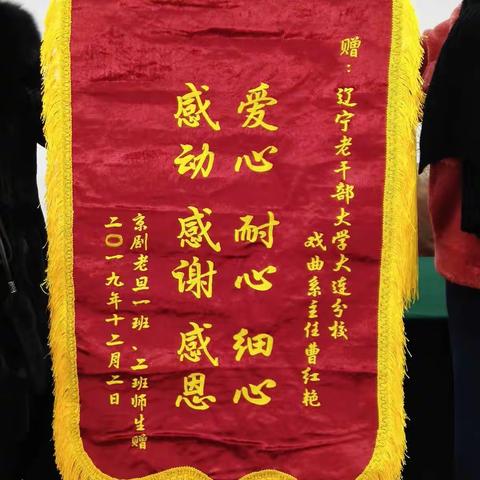 赠：辽宁老干部大学大连分校
戏曲系主任曹红艳
爱心 耐心 细心
感动 感谢 感恩
京剧老旦一班、二班师生赠
二〇一九年十二月二日